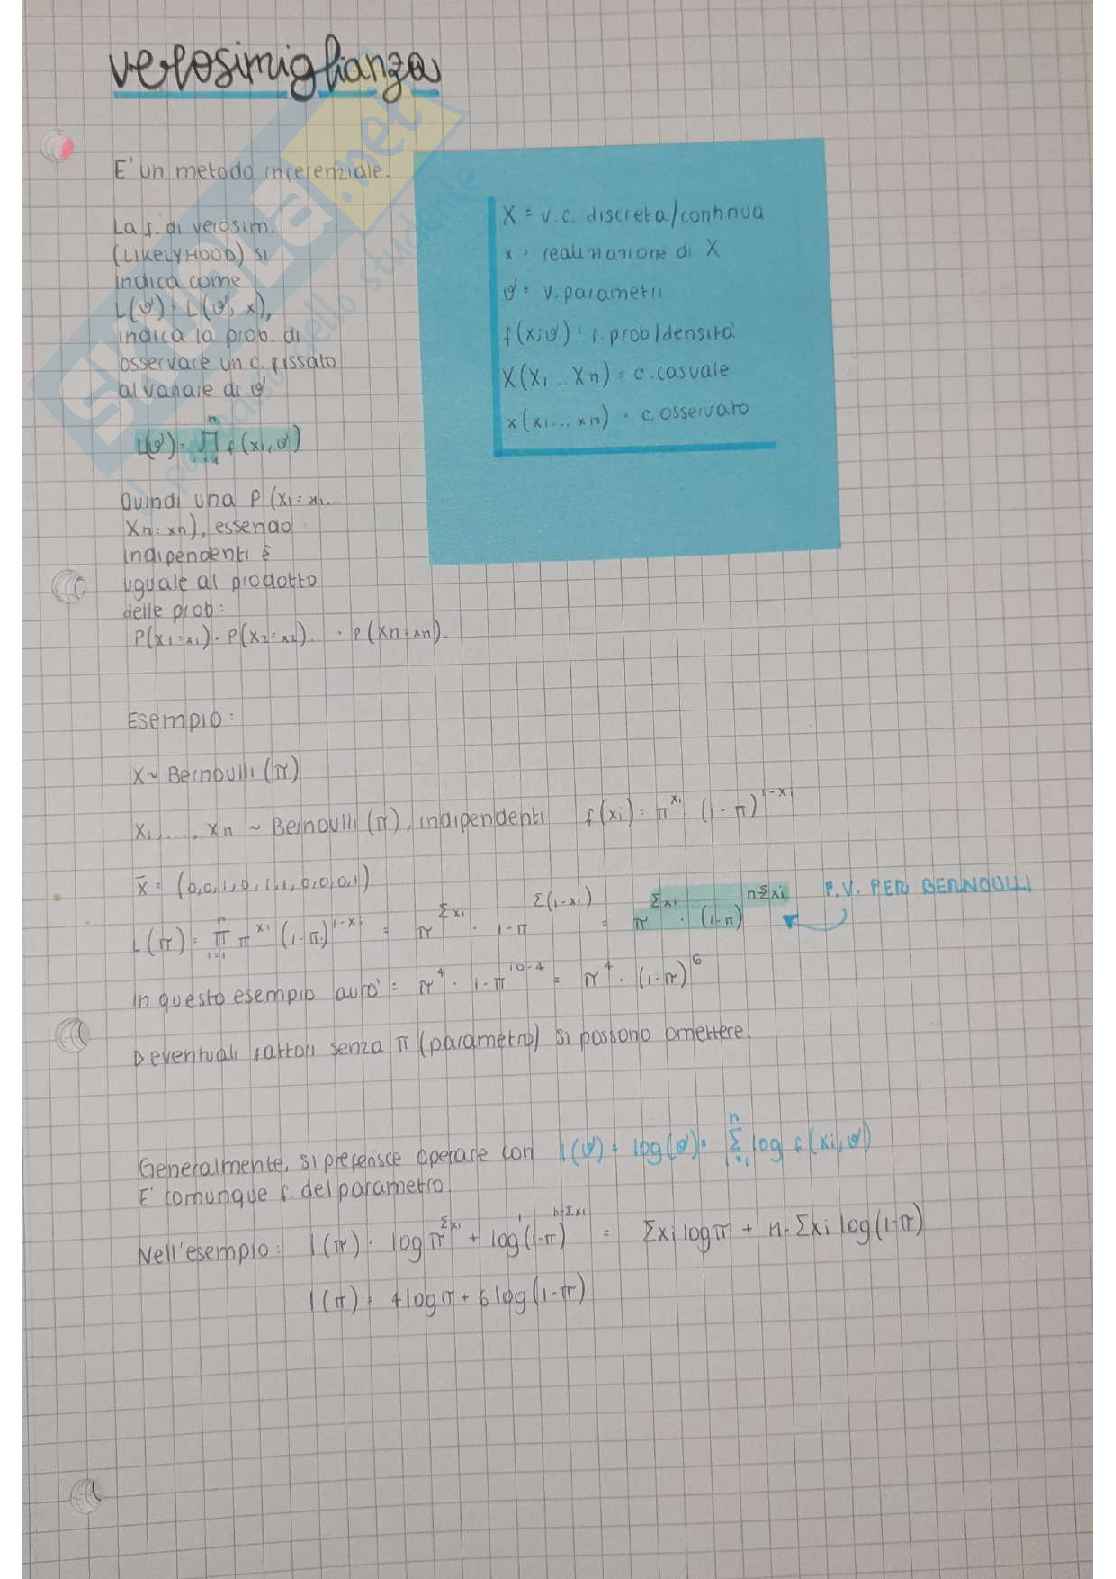 verosimiglianza
E' un metodo inferenziale.
La f. di verosim.
(LIKELYHOOD) si
indica come
L(ϑ) = L(ϑ, x),
indica la prob. di
osservare un c. fissato
al variare di ϑ
L(ϑ) = ∏ⁿᵢ₌₁ f(xi, ϑ)
Quindi una P(X1=x1...
Xn=xn), essendo
indipendenti è
uguale al prodotto
delle prob:
P(X1=x1)·P(X2=x2)... · P(Xn=xn).
X = v.c. discreta/continua
x = realizzazione di X
ϑ = v. parametri
f(x;ϑ) = f. prob/densità
X(X1...Xn) = c. casuale
x(x1...xn) = c. osservato
Esempio:
X ~ Bernoulli (π)
X1, ..., Xn ~ Bernoulli (π), indipendenti f(xi) = π^xi (1-π)^1-xi
x̄ = (0,0,1,0,1,1,0,0,0,1)
L(π) = ∏ⁿᵢ₌₁ π^xi (1-π)^1-xi = π^Σxi · 1-π^Σ(1-xi) = π^Σxi · (1-π)^n-Σxi F.V. PER BERNOULLI
In questo esempio avrò = π^4 · 1-π^10-4 = π^4 · (1-π)^6
▷ eventuali fattori senza π (parametro) si possono omettere.
Generalmente, si preferisce operare con l(ϑ) = log(ϑ) = Σⁿᵢ₌₁ log f(xi, ϑ)
E' comunque f. del parametro.
Nell'esempio: l(π) = log π^Σxi + log(1-π)^n-Σxi = Σxi log π + n-Σxi log(1-π)
l(π) = 4 log π + 6 log(1-π)